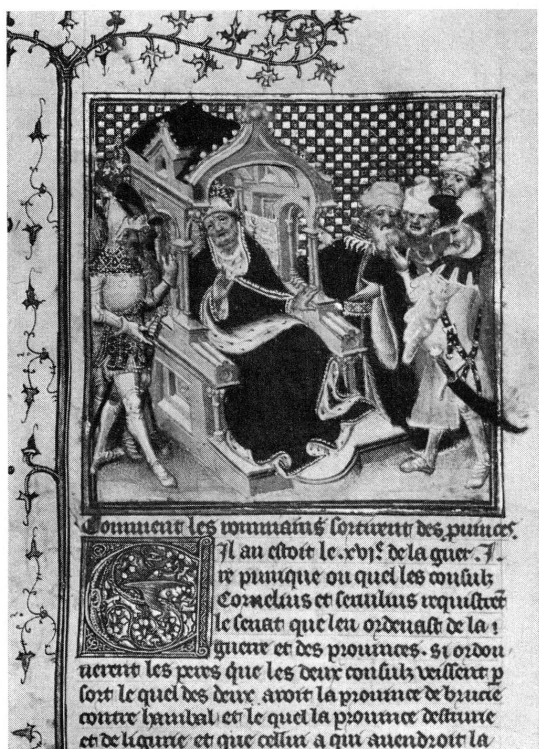 Comment les rommains sortirent des prouinces.
Cil an estoit le .xvie. de la guer
re punique ou quel les consulz
Cornelius et seruilius requistrent
le senat que len ordenast de la
guerre et des prouinces. si ordon
nerent les peres que les deux consulz veissent p
sort le quel des deux auroit la prouince de brucie
contre hanibal et le quel la prouince destrurie
et de ligurie et que cellui a qui auendroit la